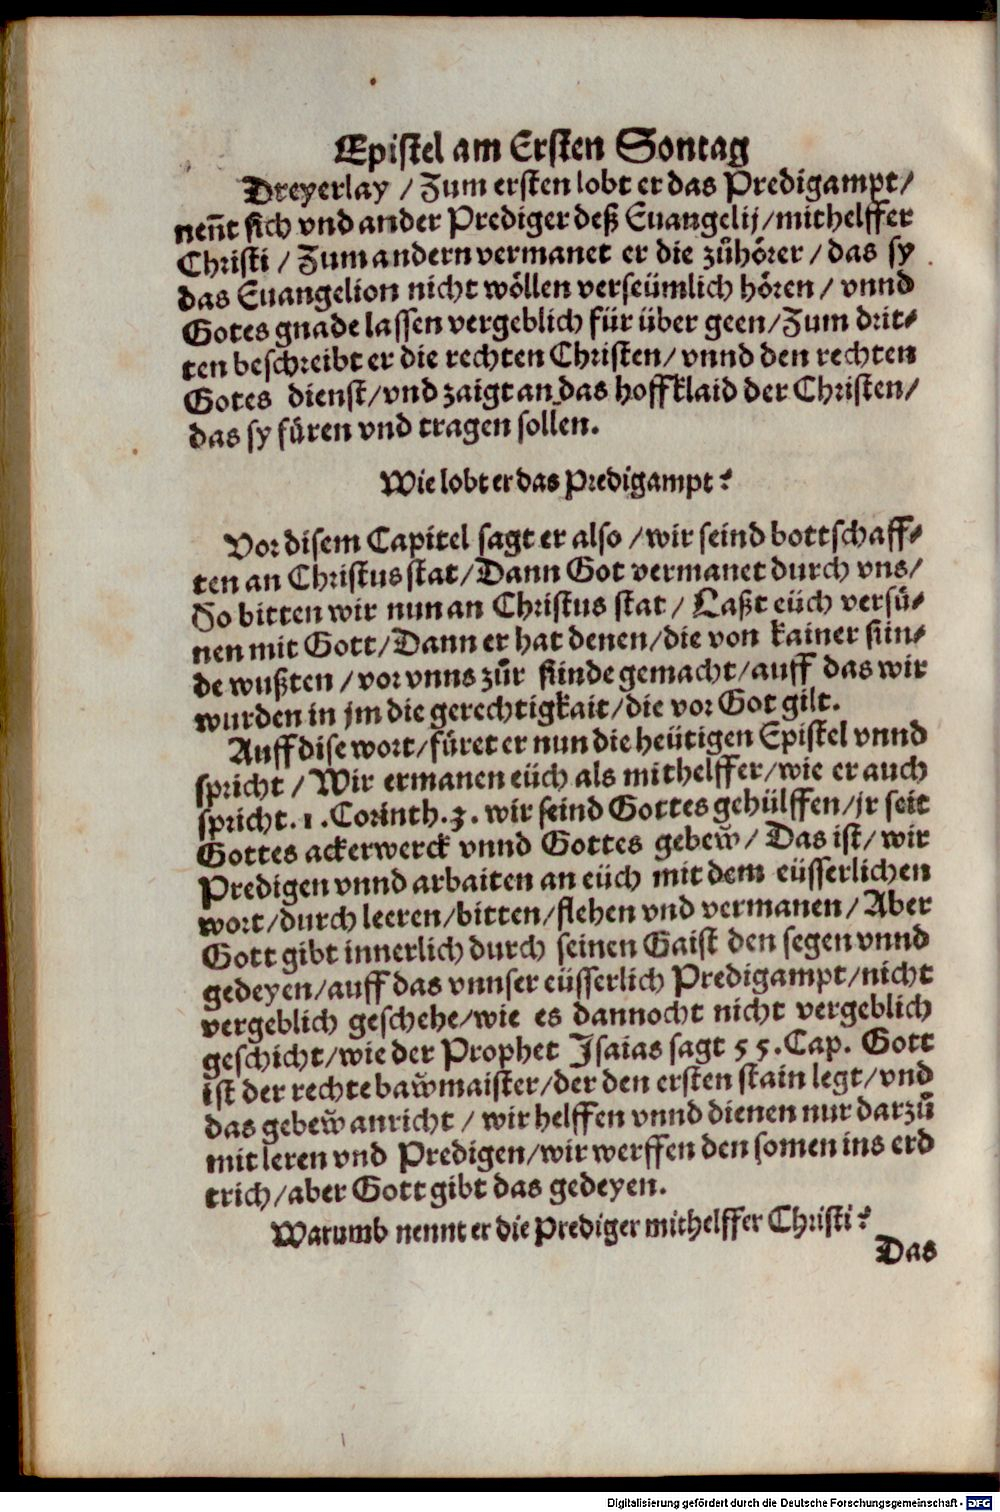 Epistel am Ersten Sontag
Dreyerlay / Zum ersten lobt er das Predigampt /
neñt sich vnd ander Prediger deß Euangelij / mithelffer
Christi / Zum andern vermanet er die zůhörer / das sy
das Euangelion nicht wöllen verseümlich hören / vnnd
Gotes gnade lassen vergeblich für über geen / Zum drit⸗
ten beschreibt er die rechten Christen / vnnd den rechten
Gotes dienst / vnd zaigt an das hoffklaid der Christen /
das sy füren vnd tragen sollen.
Wie lobt er das Predigampt?
Vor disem Capitel sagt er also / wir seind bottschaff⸗
ten an Christus stat / Dann Got vermanet durch vns /
So bitten wir nun an Christus stat / Laßt eüch versü⸗
nen mit Gott / Dann er hat denen / die von kainer sün⸗
de wußten / vor vnns zůr sünde gemacht / auff das wir
wurden in jm die gerechtigkait / die vor Got gilt.
Auff dise wort / füret er nun die heütigen Epistel vnnd
spricht / Wir ermanen eüch als mithelffer / wie er auch
spricht. 1. Corinth. 3. wir seind Gottes gehülffen / jr seit
Gottes ackerwerck vnnd Gottes gebew̌ / Das ist / wir
Predigen vnnd arbaiten an eüch mit dem eüsserlichen
wort / durch leeren / bitten / flehen vnd vermanen / Aber
Gott gibt innerlich durch seinen Gaist den segen vnnd
gedeyen / auff das vnnser eüsserlich Predigampt / nicht
vergeblich geschehe / wie es dannocht nicht vergeblich
geschicht / wie der Prophet Isaias sagt 55. Cap. Gott
ist der rechte baw̌maister / der den ersten stain legt / vnd
das gebew̌ anricht / wir helffen vnnd dienen nur darzů
mit leren vnd Predigen / wir werffen den somen ins erd
trich / aber Gott gibt das gedeyen.
Warumb nennt er die Prediger mithelffer Christi?
Das
Digitalisierung gefördert durch die Deutsche Forschungsgemeinschaft - DFG